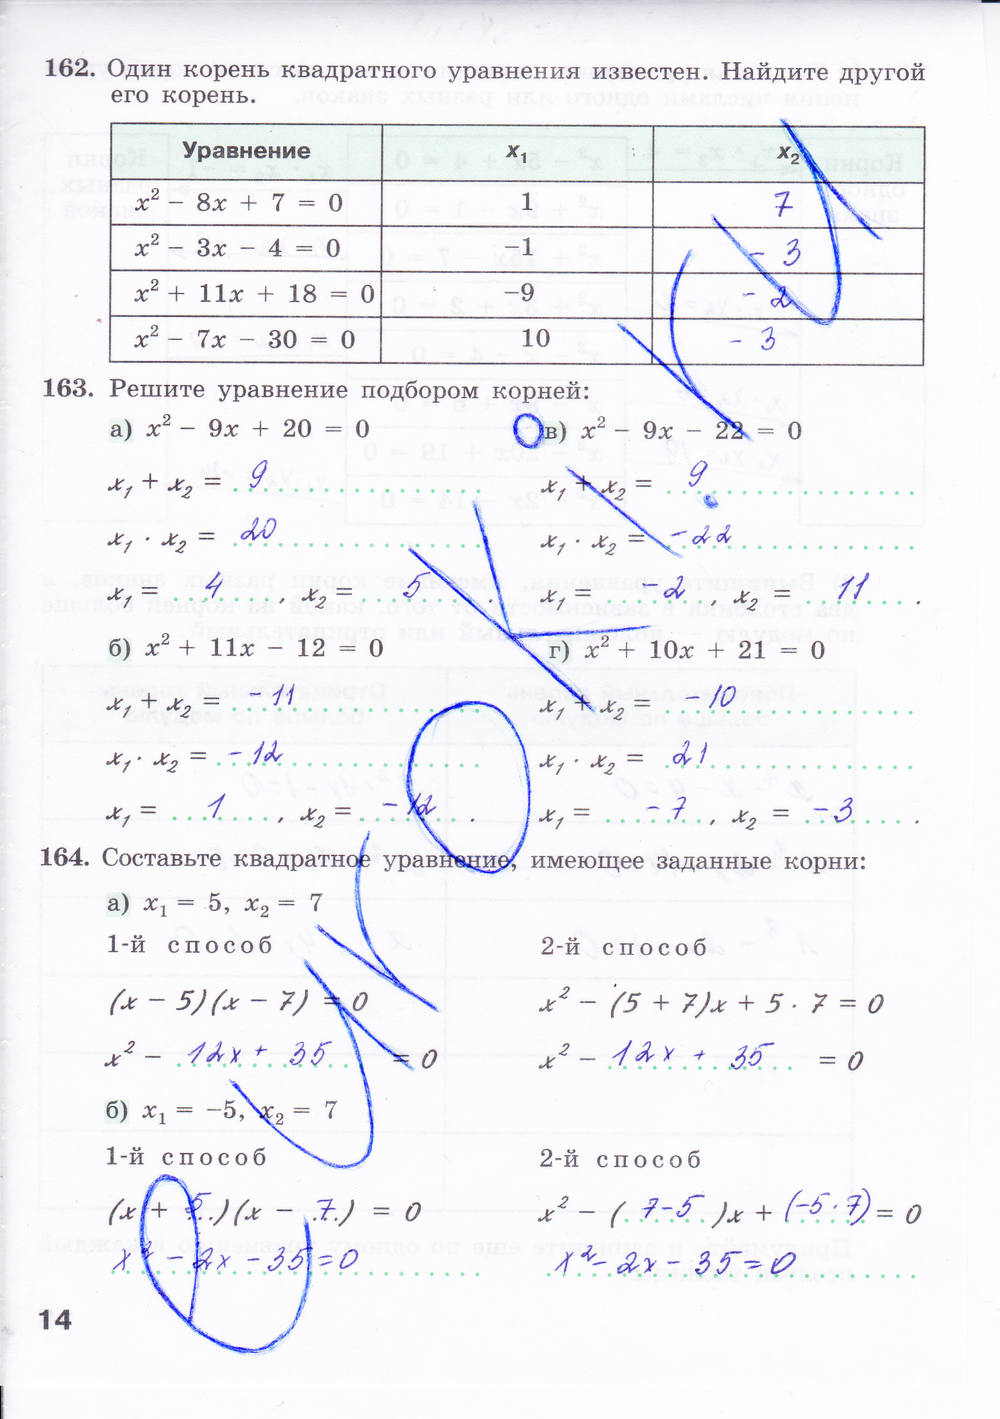 162. Один корень квадратного уравнения известен. Найдите другой
его корень.
Уравнение x₁ x₂
x² − 8x + 7 = 0 1 7
x² − 3x − 4 = 0 −1 − 3
x² + 11x + 18 = 0 −9 − 2
x² − 7x − 30 = 0 10 − 3
163. Решите уравнение подбором корней:
а) x² − 9x + 20 = 0 в) x² − 9x − 22 = 0
x₁ + x₂ = 9 x₁ + x₂ = 9
x₁ · x₂ = 20 x₁ · x₂ = −22
x₁ = 4, x₂ = 5. x₁ = −2 x₂ = 11.
б) x² + 11x − 12 = 0 г) x² + 10x + 21 = 0
x₁ + x₂ = −11 x₁ + x₂ = −10
x₁ · x₂ = −12 x₁ · x₂ = 21
x₁ = 1, x₂ = −12. x₁ = −7, x₂ = −3.
164. Составьте квадратное уравнение, имеющее заданные корни:
а) x₁ = 5, x₂ = 7
1-й способ 2-й способ
(x − 5)(x − 7) = 0 x² − (5 + 7)x + 5 · 7 = 0
x² − 12x + 35 = 0 x² − 12x + 35 = 0
б) x₁ = −5, x₂ = 7
1-й способ 2-й способ
(x + 5)(x − 7) = 0 x² − (7−5)x + (−5·7) = 0
x² − 2x − 35 = 0 x² − 2x − 35 = 0
14